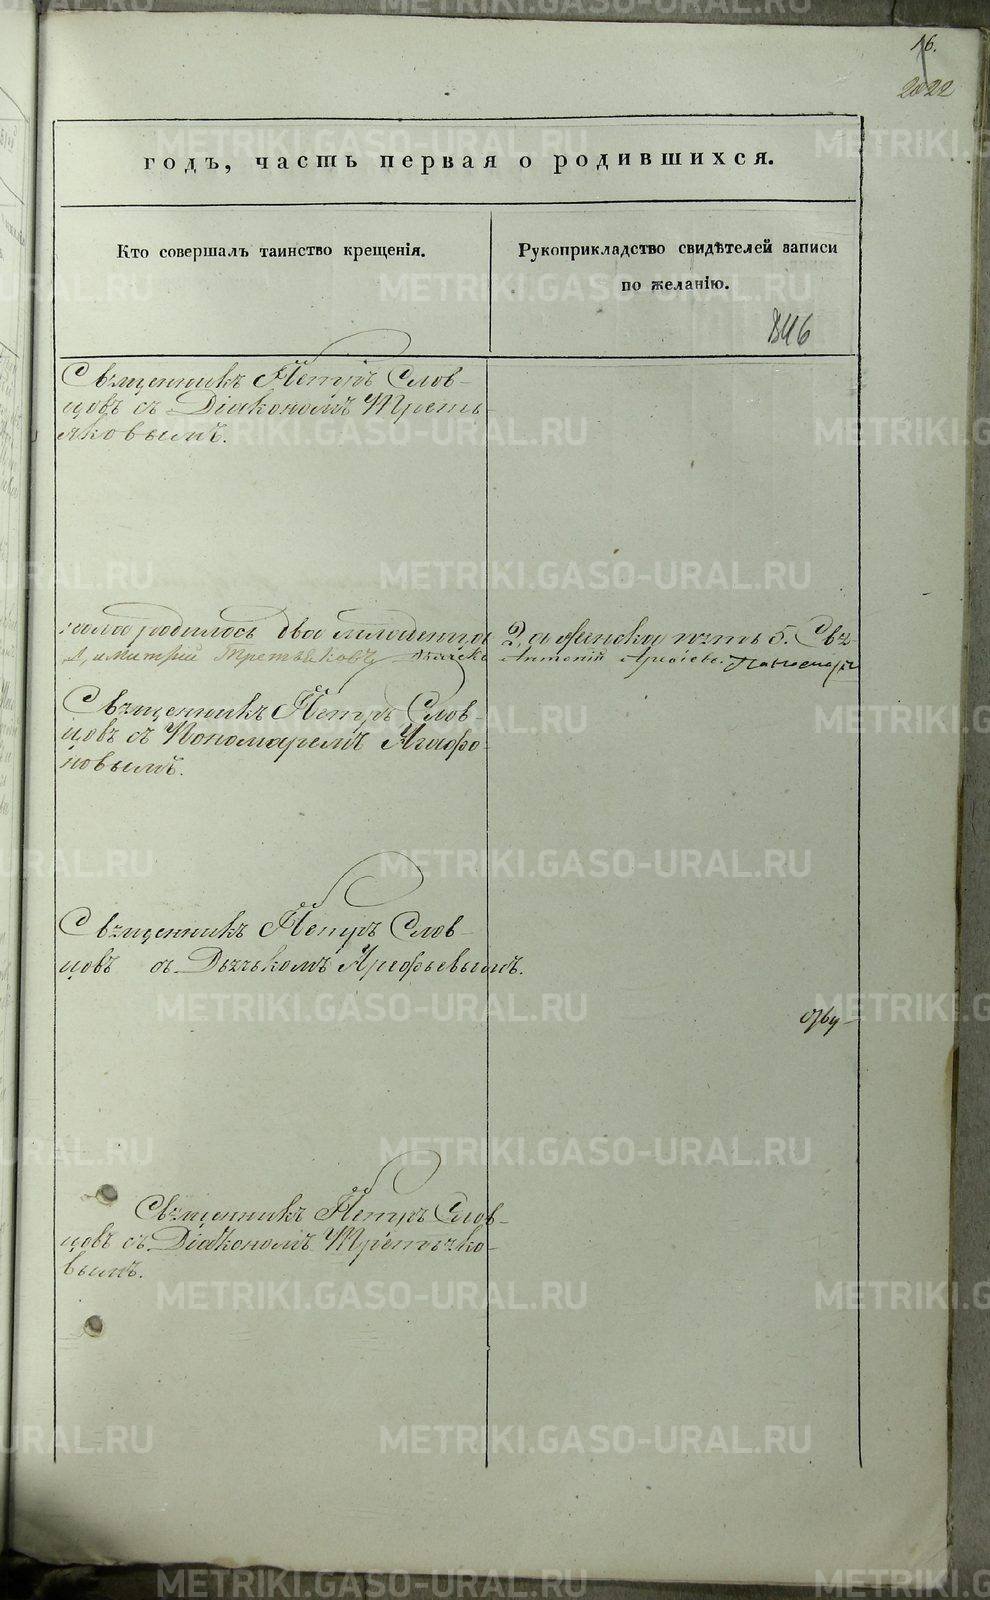 16.
2022
годъ, часть первая о родившихся.
Кто совершалъ таинство крещенія.
Рукоприкладство свидѣтелей записи
по желанію.
846
Священникъ Петръ Слов-
цовъ съ Діакономъ Треть-
яковымъ.
родилось два младенца
2, а женска пять 5. Свя-
Димитрій Третьяковъ
Антоній
Священникъ Петръ Слов-
цовъ съ Пономаремъ Агафо-
новымъ.
Священникъ Петръ Слов-
цовъ съ Дьячькомъ Арефьевымъ.
Священникъ Петръ Слов-
цовъ съ Діакономъ Третьяко-
вымъ.
METRIKI.GASO-URAL.RU